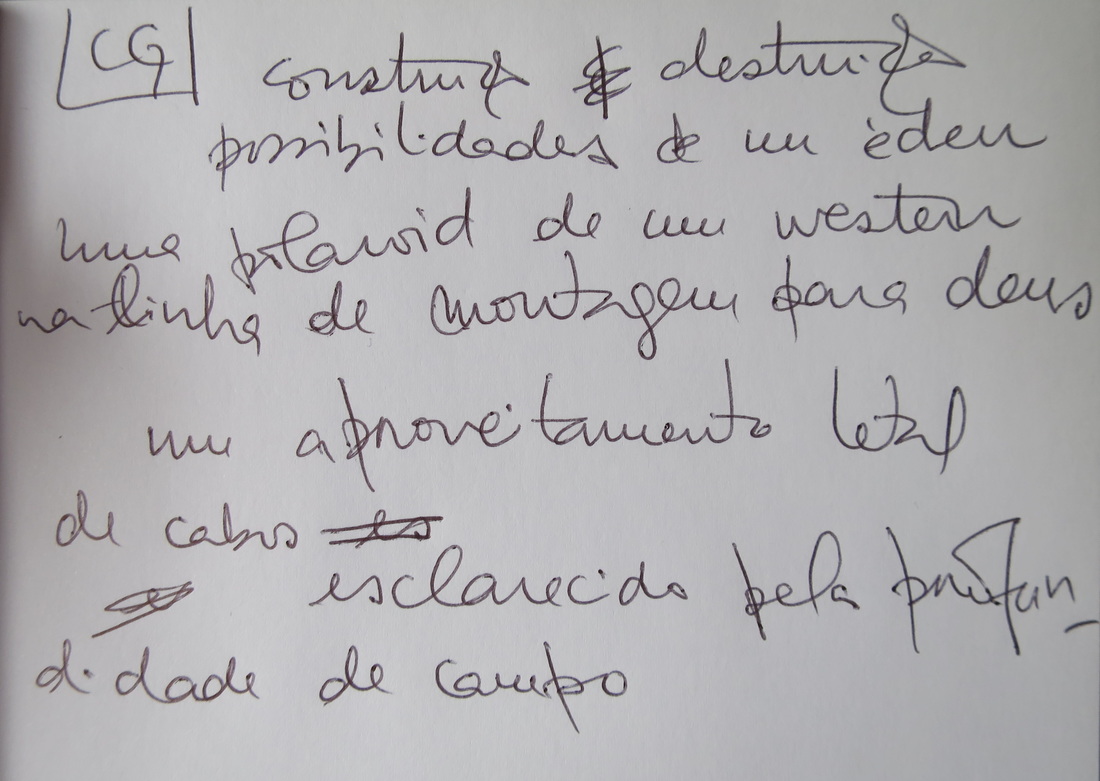 CG construção e destruição
possibilidades de um èden
uma polaroid de um western
na linha de montagem para deus
um aproveitamento letal
de cabos
esclarecido pela profun_
didade de campo